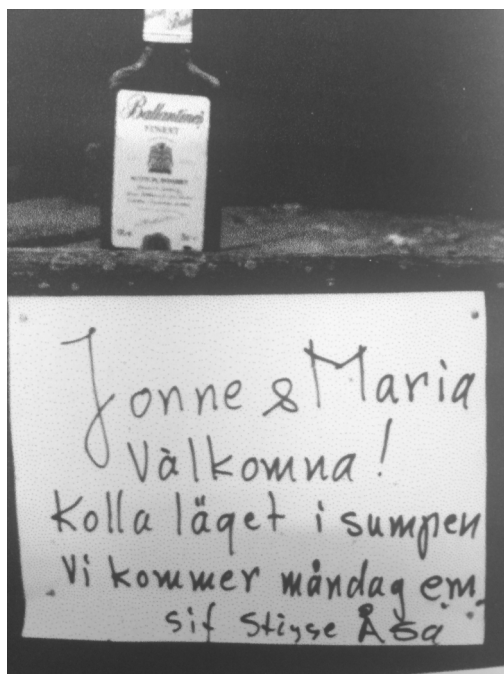 Ballantine's
FINEST
SCOTCH WHISKY
Jonne & Maria
Välkomna!
Kolla läget i sumpen
Vi kommer måndag em.
Sif Stigse Åsa